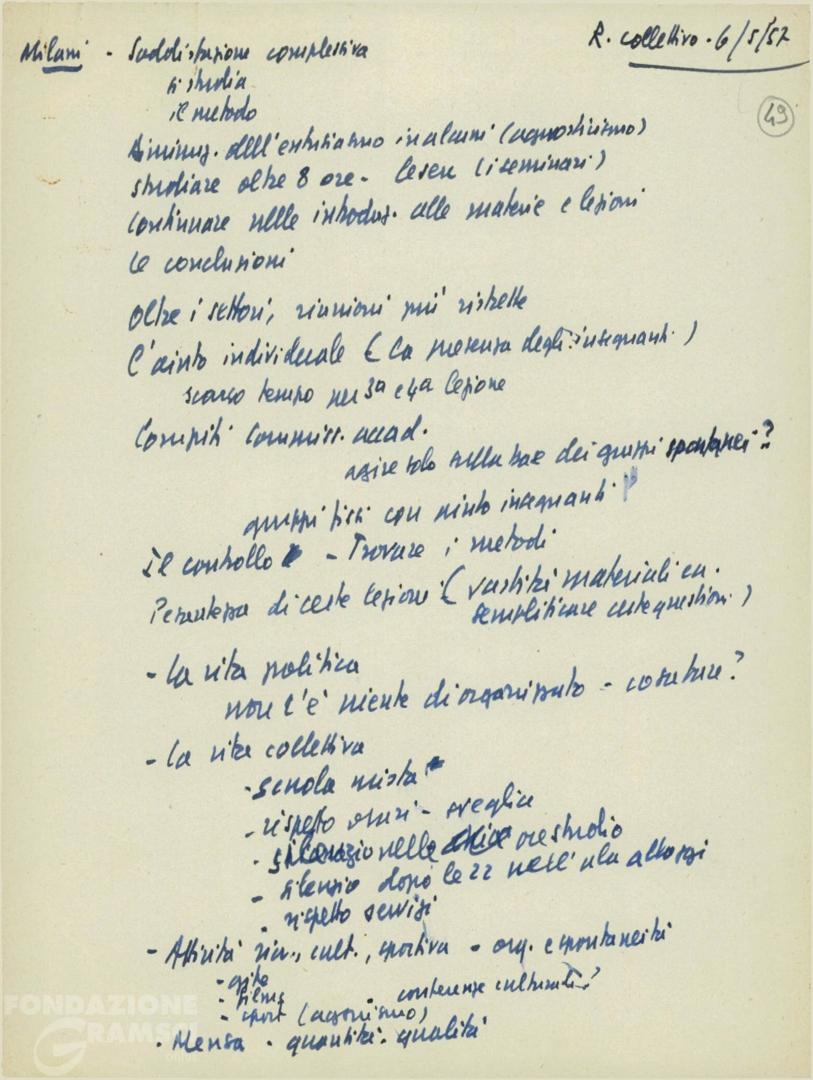 R. collettivo - 6/5/57
49
Milani - Soddisfazione complessiva
si studia
il metodo
Diminuz. dell'entusiasmo in alcuni (agnosticismo)
studiare oltre 8 ore - Lesen (i seminari)
Continuare nelle introduz. alle materie e lezioni
Le conclusioni
Oltre i settori, riunioni più ristrette
L'aiuto individuale (la presenza degli insegnanti)
scarso tempo per 3a e 4a lezione
Compiti Commiss. accad.
agire solo sulla base dei gruppi spontanei?
gruppi fissi con aiuto insegnanti
Il controllo - Trovare i metodi
Pesantezza di certe lezioni (vastità materiali ca.
semplificare certe questioni)
- La vita politica
non c'è niente di organizzato - cosa fare?
- La vita collettiva
- scuola mista
- rispetto orari - sveglia
- silenzio nelle ore studio
- silenzio dopo le 22 nell'ala alloggi
- rispetto servizi
- Attività ricr., cult., sportiva - org. e spontaneità
- gite
- films - conferenze culturali?
- sport (agonismo)
- Mensa - quantità - qualità
FONDAZIONE
GRAMSCI